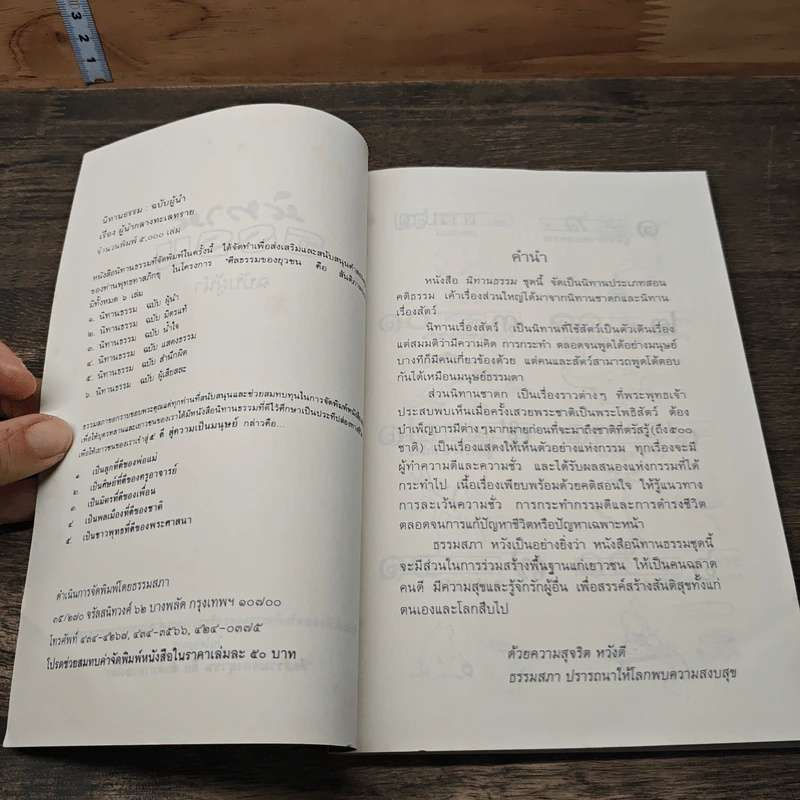 นิทานธรรม : ฉบับผู้นำ
เรื่อง ผู้นำกลางทะเลทราย
จำนวนพิมพ์ ๕,๐๐๐ เล่ม
หนังสือนิทานธรรมที่จัดพิมพ์ในครั้งนี้ ได้จัดทำเพื่อส่งเสริมและสนับสนุน
ของท่านพุทธทาสภิกขุ ในโครงการ "ศีลธรรมของยุวชน คือ
มีทั้งหมด ๖ เล่ม
๑. นิทานธรรม ฉบับ ผู้นำ
๒. นิทานธรรม ฉบับ มิตรแท้
๓. นิทานธรรม ฉบับ น้ำใจ
๔. นิทานธรรม ฉบับ แสดงธรรม
๕. นิทานธรรม ฉบับ สำนึกผิด
๖. นิทานธรรม ฉบับ ผู้เสียสละ
ธรรมสภาขอกราบขอบพระคุณแด่ทุกท่านที่สนับสนุนและช่วยสมทบทุนในการจัดพิมพ์
เพื่อให้บุตรหลานและเยาวชนของเราได้มีหนังสือนิทานธรรมที่ดีไว้ศึกษาเป็นประทีปส่องทาง
เพื่อให้เยาวชนของเราเข้าสู่ ๕ ดี สู่ความเป็นมนุษย์ กล่าวคือ...
๑. เป็นลูกที่ดีของพ่อแม่
๒. เป็นศิษย์ที่ดีของครูอาจารย์
๓. เป็นมิตรที่ดีของเพื่อน
๔ เป็นพลเมืองที่ดีของชาติ
๕. เป็นชาวพุทธที่ดีของพระศาสนา
ดำเนินการจัดพิมพ์โดยธรรมสภา
๓๕/๒๗๐ จรัลสนิทวงศ์ ๖๒ บางพลัด กรุงเทพฯ ๑๐๗๐๐
โทรศัพท์ ๔๓๔-๔๒๖๗, ๔๓๔-๓๕๖๖, ๔๒๔-๐๓๗๕
โปรดช่วยสมทบค่าจัดพิมพ์หนังสือในราคาเล่มละ ๕๐ บาท
คำนำ
หนังสือ นิทานธรรม ชุดนี้ จัดเป็นนิทานประเภทสอน
คติธรรม เค้าเรื่องส่วนใหญ่ได้มาจากนิทานชาดกและนิทาน
เรื่องสัตว์
นิทานเรื่องสัตว์ เป็นนิทานที่ใช้สัตว์เป็นตัวเดินเรื่อง
แต่สมมติว่ามีความคิด การกระทำ ตลอดจนพูดได้อย่างมนุษย์
บางทีก็มีคนเกี่ยวข้องด้วย แต่คนและสัตว์สามารถพูดโต้ตอบ
กันได้เหมือนมนุษย์ธรรมดา
ส่วนนิทานชาดก เป็นเรื่องราวต่างๆ ที่พระพุทธเจ้า
ประสบพบเห็นเมื่อครั้งเสวยพระชาติเป็นพระโพธิสัตว์ ต้อง
บำเพ็ญบารมีต่างๆมากมายก่อนที่จะมาถึงชาติที่ตรัสรู้(ถึง๕๐๐
ชาติ) เป็นเรื่องแสดงให้เห็นตัวอย่างแห่งกรรม ทุกเรื่องจะมี
ผู้ทำความดีและความชั่ว และได้รับผลสนองแห่งกรรมที่ได้
กระทำไป เนื้อเรื่องเพียบพร้อมด้วยคติสอนใจ ให้รู้แนวทาง
การละเว้นความชั่ว การกระทำกรรมดีและการดำรงชีวิต
ตลอดจนการแก้ปัญหาชีวิตหรือปัญหาเฉพาะหน้า
ธรรมสภา หวังเป็นอย่างยิ่งว่า หนังสือนิทานธรรมชุดนี้
จะมีส่วนในการร่วมสร้างพื้นฐานแก่เยาวชน ให้เป็นคนฉลาด
คนดี มีความสุขและรู้จักรักผู้อื่น เพื่อสรรค์สร้างสันติสุขทั้งแก่
ตนเองและโลกสืบไป
ด้วยความสุจริต หวังดี
ธรรมสภา ปรารถนาให้โลกพบความสงบสุข
3
2
1